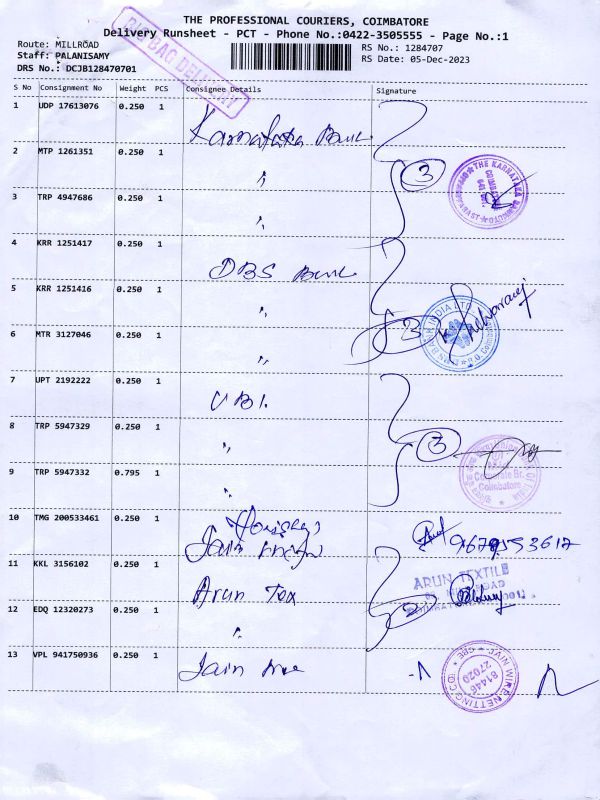 THE PROFESSIONAL COURIERS, COIMBATORE
Delivery Runsheet - PCT - Phone No.:0422-3505555 - Page No.:1
Route: MILLROAD
Staff: PALANISAMY
DRS No.: DCJB128470701
RS No.: 1284707
RS Date: 05-Dec-2023
BIG BAG DELIVERY
S No Consignment No Weight PCS Consignee Details Signature
1 UDP 17613076 0.250 1 Karnataka Bank
2 MTP 1261351 0.250 1 "
3 TRP 4947686 0.250 1 "
3
THE KARNATAKA
4 KRR 1251417 0.250 1 DBS Bank
5 KRR 1251416 0.250 1 "
6 MTR 3127046 0.250 1 "
3
BANK INDIA LTD
7 UPT 2192222 0.250 1 UBI.
8 TRP 5947329 0.250 1 "
9 TRP 5947332 0.795 1 "
3
Corporate Br.
Coimbatore
10 TMG 200533461 0.250 1
11 KKL 3156102 0.250 1 Arun Tex
ARUN TEXTILE
12 EDQ 12320273 0.250 1 "
2
13 VPL 941750936 0.250 1 Jain
WIRE NETTING CO
81446
27020